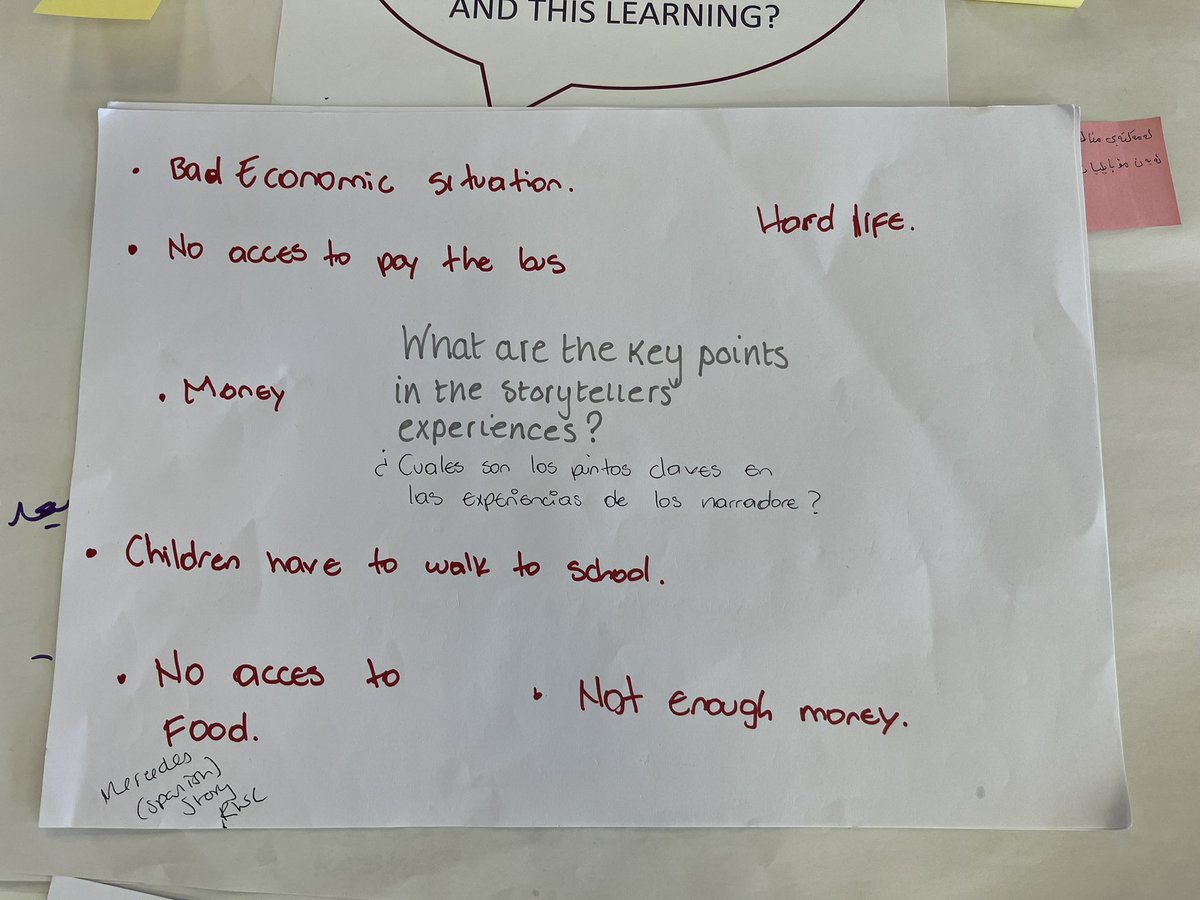 AND THIS LEARNING?
• Bad Economic situation.
Hard life.
• No acces to pay the bus
What are the key points
in the storytellers'
experiences?
• Money
¿Cuales son los puntos claves en
las experiencias de los narradore?
• Children have to walk to school.
• No acces to
Food.
• Not enough money.
Mercedes
(spanish)
story